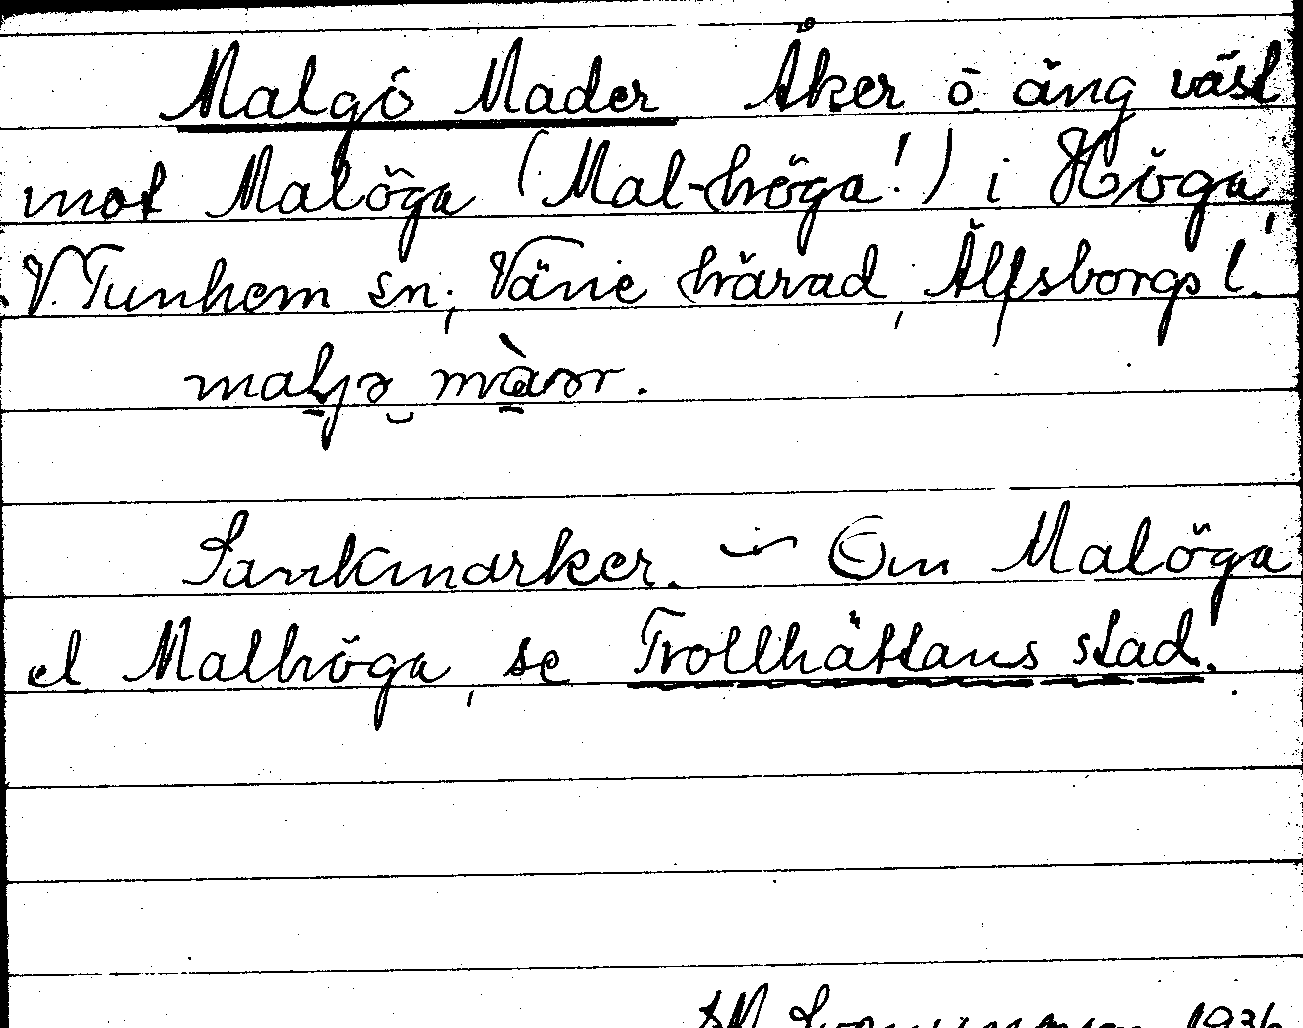 Malgö Mader Åker o. äng väst
mot Malöga (Mal-höga!) i Höga,
V. Tunhem sn, Väne härad, Älfsborgs l.
maljə
Sankmarker. – Om Malöga
el Malhöga, se Trollhättans stad.
1936